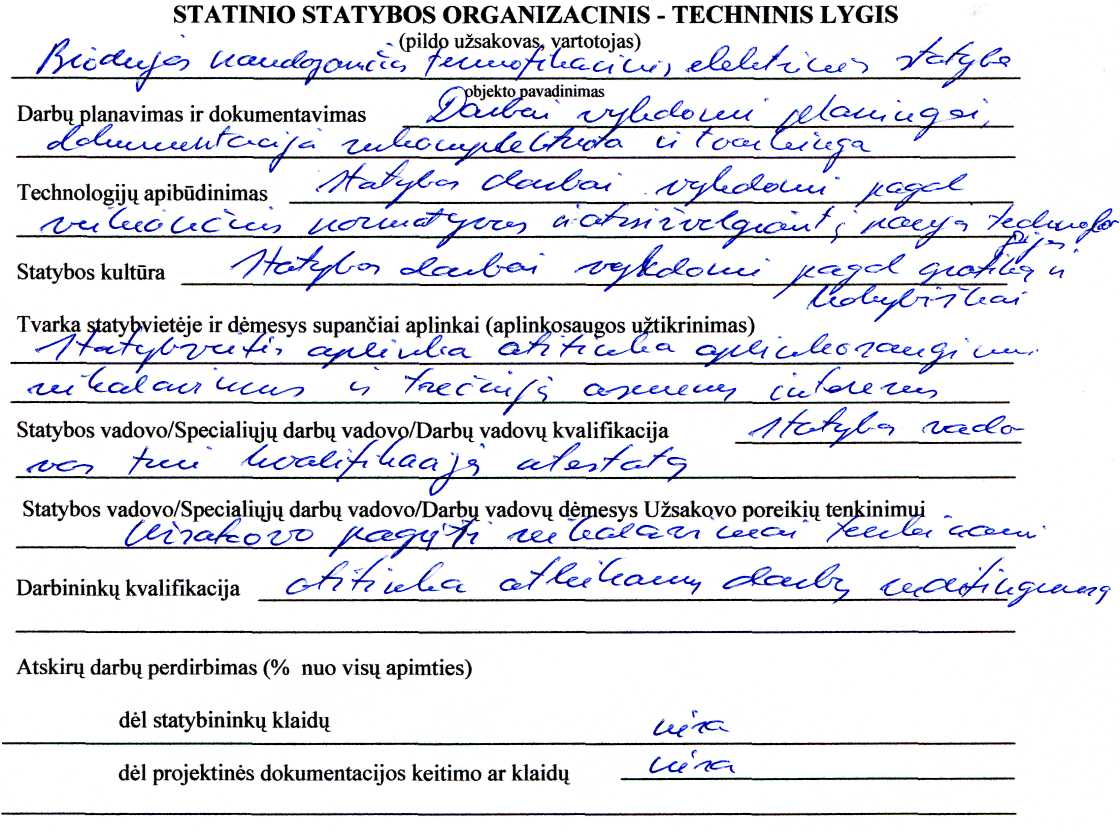 STATINIO STATYBOS ORGANIZACINIS - TECHNINIS LYGIS
(pildo užsakovas, vartotojas)
Biodujas naudojančios termofikacinės elektrinės statyba
objekto pavadinimas
Darbų planavimas ir dokumentavimas Darbai vykdomi planingai,
dokumentacija sukomplektuota ir tvarkinga
Technologijų apibūdinimas Statybos darbai vykdomi pagal
veikiančius normatyvus ir atsižvelgiant į naują technolo
gijas
Statybos kultūra Statybos darbai vykdomi pagal grafiką ir
kokybiškai
Tvarka statybvietėje ir dėmesys supančiai aplinkai (aplinkosaugos užtikrinimas)
Statybvietės aplinka atitinka aplinkosauginius
reikalavimus ir trečiųjų asmenų interesus
Statybos vadovo/Specialiųjų darbų vadovo/Darbų vadovų kvalifikacija Statybos vado
vas turi kvalifikacijos atestatą
Statybos vadovo/Specialiųjų darbų vadovo/Darbų vadovų dėmesys Užsakovo poreikių tenkinimui
Užsakovo pagrįsti reikalavimai tenkinami
Darbininkų kvalifikacija atitinka atliekamų darbų sudėtingumą
Atskirų darbų perdirbimas (% nuo visų apimties)
dėl statybininkų klaidų nėra
dėl projektinės dokumentacijos keitimo ar klaidų nėra